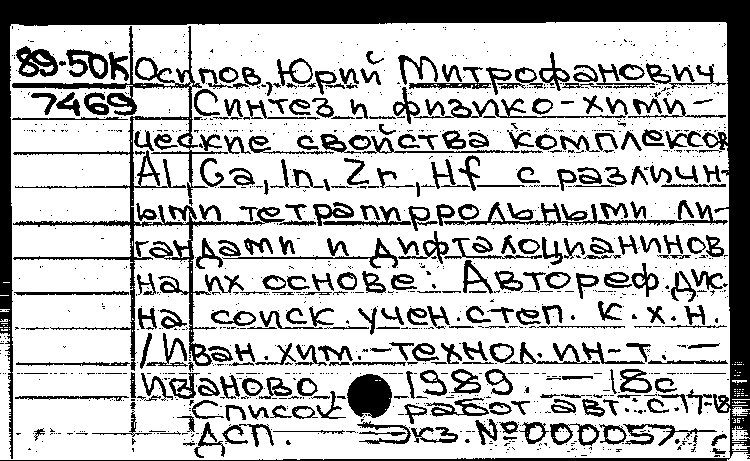 89-50К Осипов, Юрий Митрофанович
7469 Синтез и физико-хими-
ческие свойства комплексов
Al, Ga, In, Zr, Hf с различн-
ыми тетрапиррольными ли-
гандами и дифталоцианинов
на их основе: Автореф. дис.
на соиск. учен. степ. к.х.н.
/ Иван. хим.-технол. ин-т. —
Иваново, 1989. — 18с.
Список работ авт.: с.17-18
ДСП. Экз. №000057.